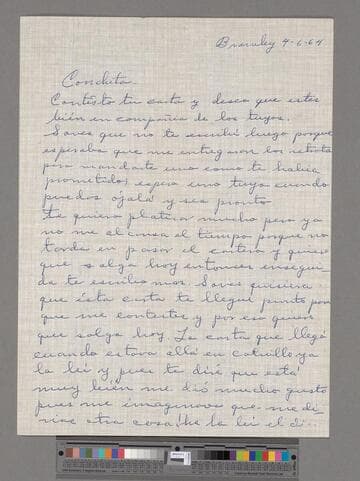 Brawley 4-6-64
Conchita
Contesto tu carta y deseo que estes
bién en compañia de los tuyos.
Saves que no te escribi luego porque
esperaba que me entregaron los retratos
para mandarte uno como te habia
prometido, espero uno tuyo cuando
puedas ojalá y sea pronto
Te quiero platicar mucho pero ya
no me alcansa el tiempo porque no
tarda en pasar el cartero y quiero
que salga hoy entonses ensegui-
da te escribo mas. Saves quisiera
que ésta carta te llegue pronto para
que me contestes y por eso quiero
que salga hoy. La carta que llegó
cuando estava allá en Calxillo ya
la leí y pues te diré que está
muy bién me dió mucho gusto
pues me imaginava que me di-
rias otra cosa! me la leí el di